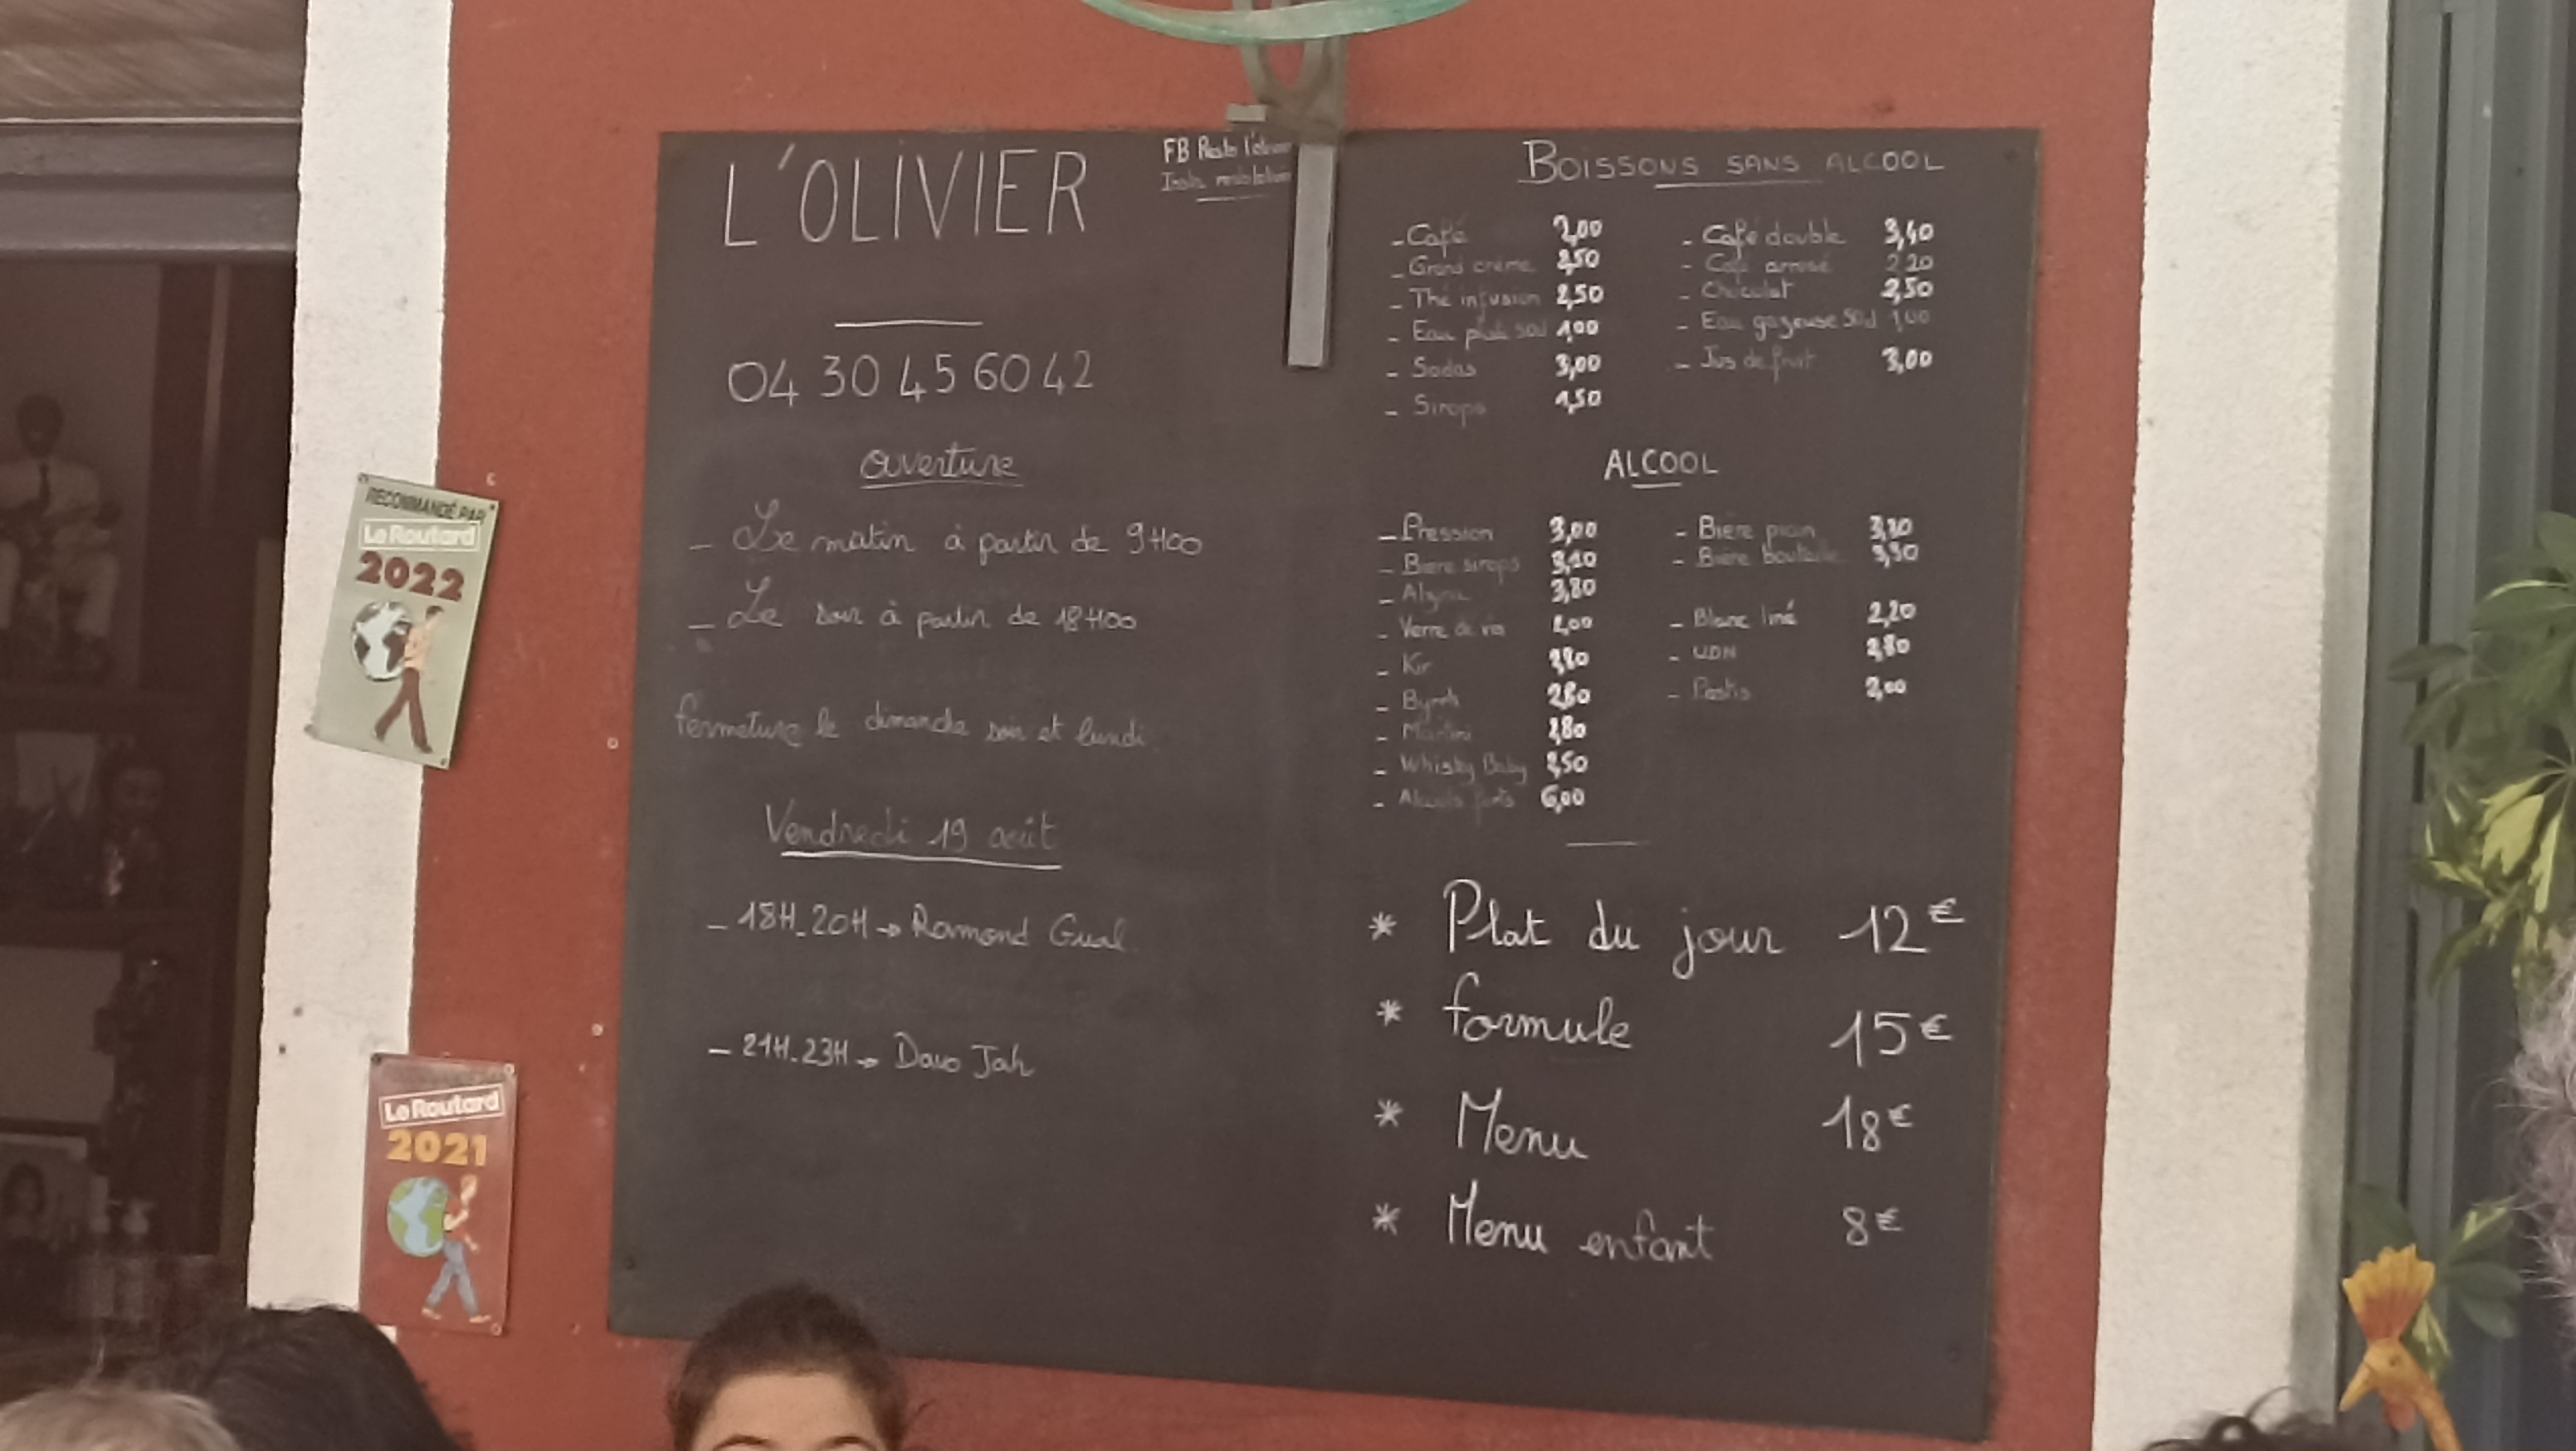 L'OLIVIER
FB Resto l'olivier
04 30 45 60 42
ouverture
- Le matin à partir de 9H00
- Le soir à partir de 18H00
fermeture le dimanche soir et lundi.
Vendredi 19 août
- 18H_20H → Ramond Gual
- 21H_23H → Davo Jah
BOISSONS SANS ALCOOL
- Café 2,00
- Grand crème 2,50
- Thé infusion 2,50
- Eau plate 50cl 1,00
- Sodas 3,00
- Sirops 1,50
- Café double 3,40
- Café arrosé 2,20
- Chocolat 2,50
- Eau gazeuse 50cl 1,00
- Jus de fruit 3,00
ALCOOL
- Pression 3,00
- Bière sirops 3,10
- 3,80
- Verre de vin 2,00
- Kir 2,80
- Byrrh 2,80
- Martini 2,80
- Whisky Baby 2,50
- Alcools forts 6,00
- Bière picon
- Bière bouteille 3,50
- Blanc limé 2,20
- 2,80
- Pastis 2,00
* Plat du jour 12€
* formule 15€
* Menu 18€
* Menu enfant 8€
RECOMMANDÉ PAR
Le Routard
2022
Le Routard
2021